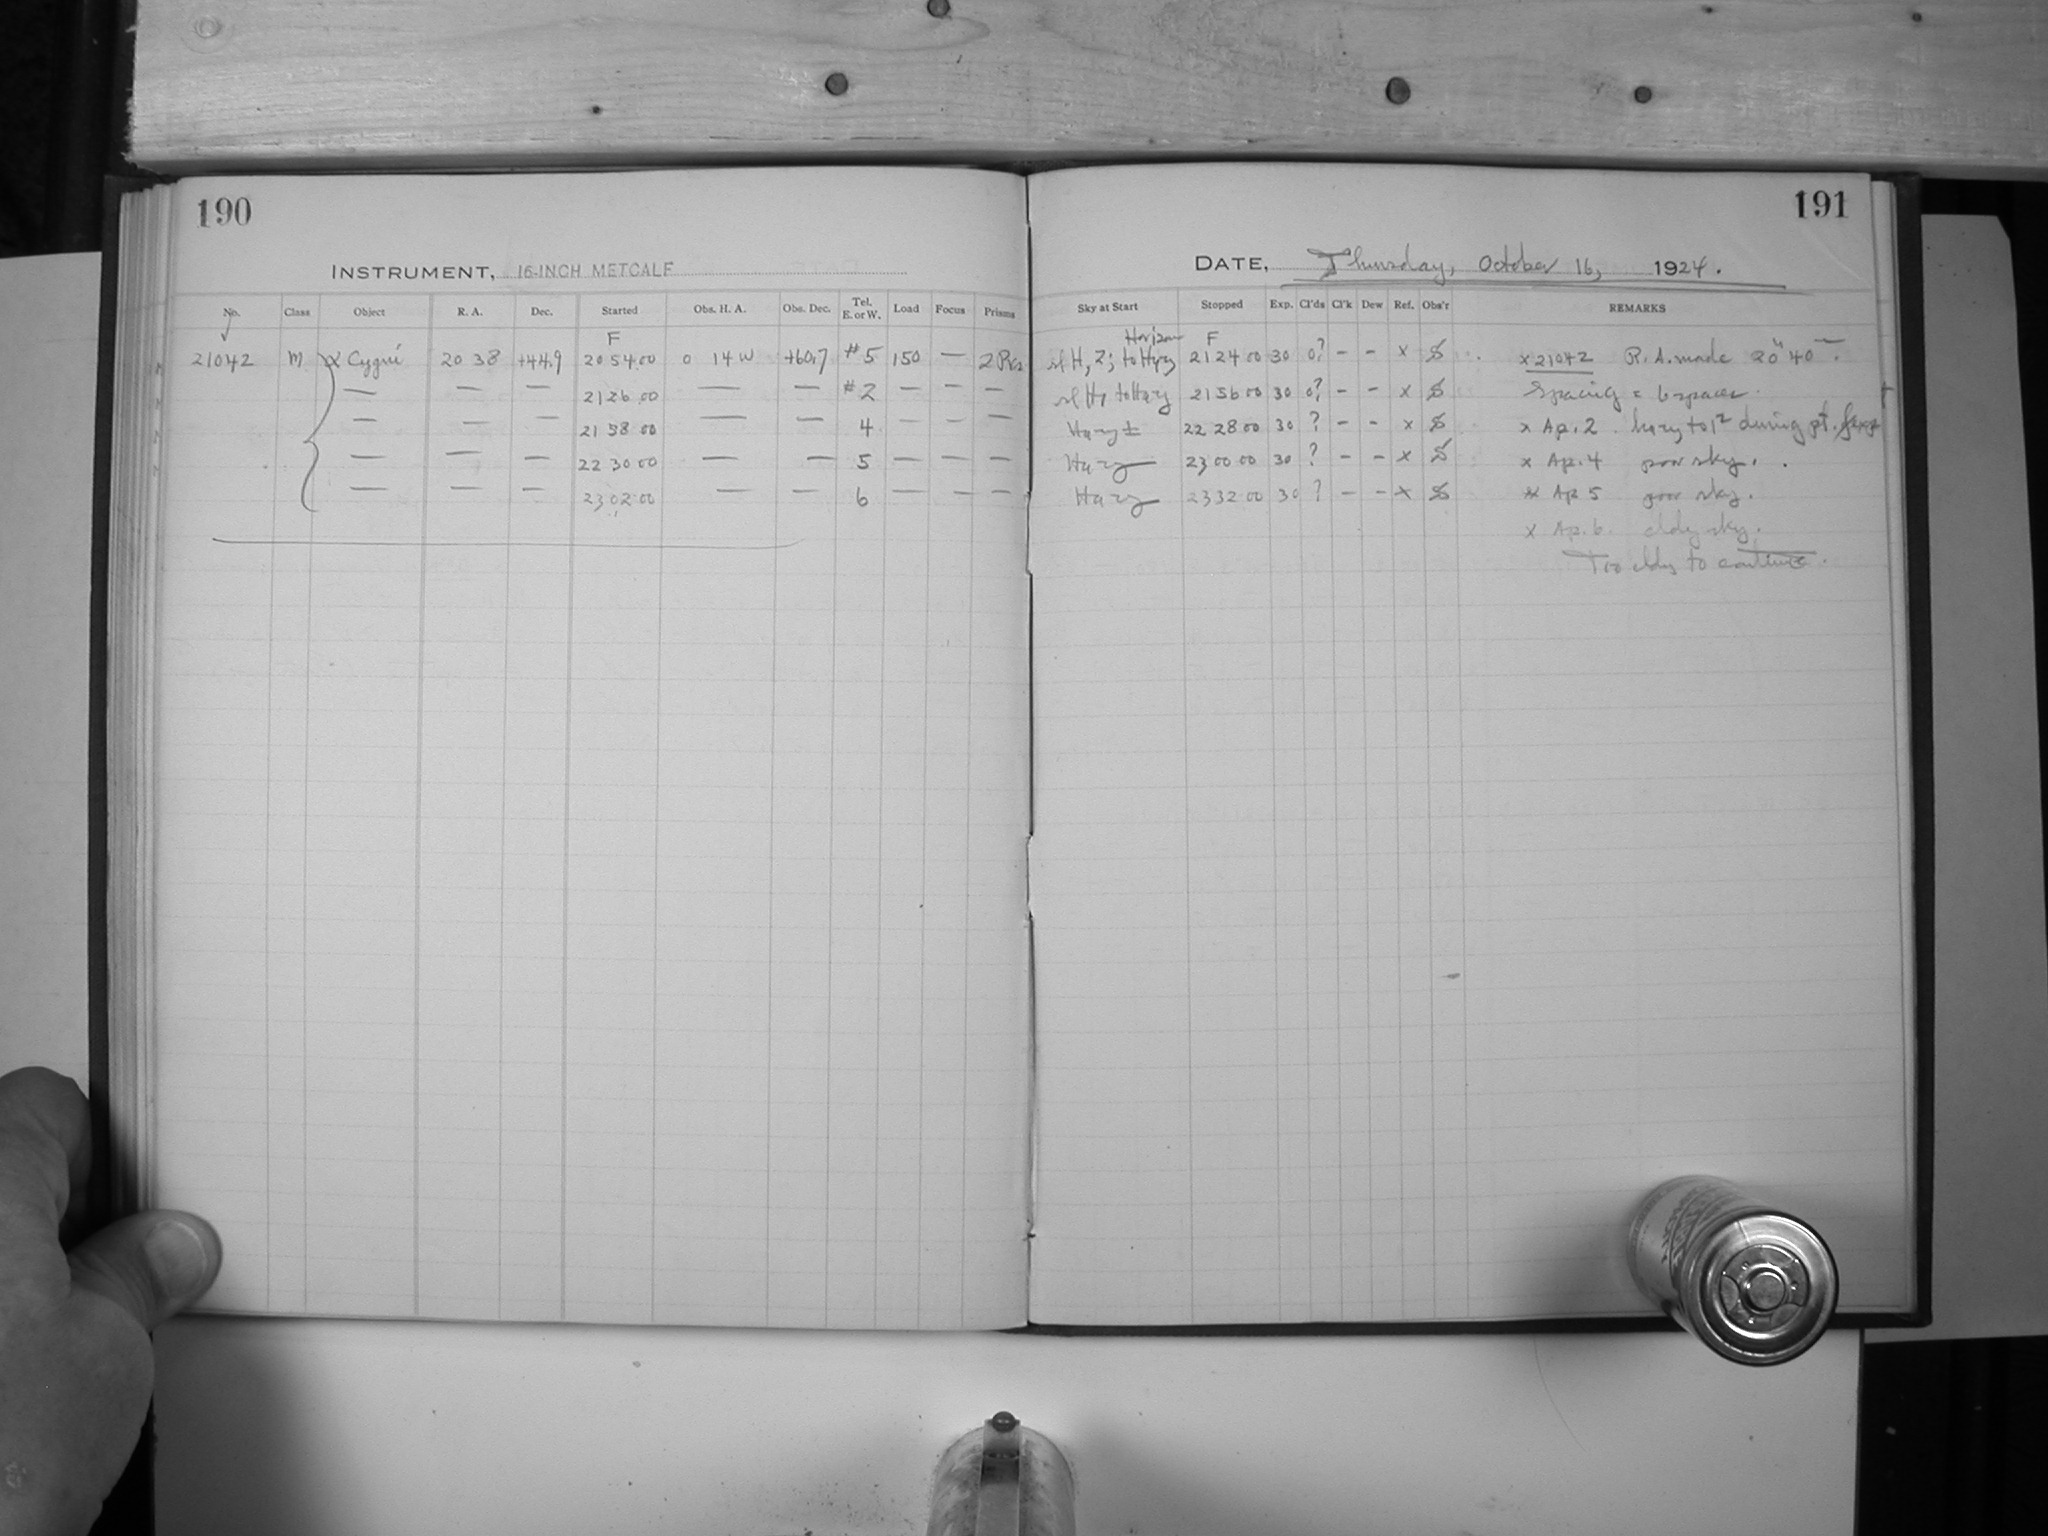 190
191
INSTRUMENT, 16-INCH METCALF
DATE, Thursday, October 16, 1924.
No. Class Object R. A. Dec. Started Obs. H. A. Obs. Dec. Tel. E. or W. Load Focus Prisms Sky at Start Stopped Exp. Cl'ds Cl'k Dew Ref. Obs'r REMARKS
F Horizon F
21042 M α Cygni 20 38 +44.9 20 54 00 0 14 W +60.7 #5 150 — 2 Prs H, Z; to Hazy 21 24 00 30 0? – – x S x 21042 R. A. made 20 40
— — — 21 26 00 — — #2 — — — H, to Hazy 21 56 00 30 0? – – x S Spacing = 6 spaces.
— — — 21 58 00 — — 4 — — — Hazy ± 22 28 00 30 ? – – x S x Ap. 2. hazy to during pt.
— — — 22 30 00 — — 5 — — — Hazy 23 00 00 30 ? – – x S x Ap. 4 poor sky.
— — — 23 02 00 — — 6 — — — Hazy 23 32 00 30 ? – – x S x Ap 5 poor sky.
x Ap. 6. cldy sky.
Too cldy to continue.